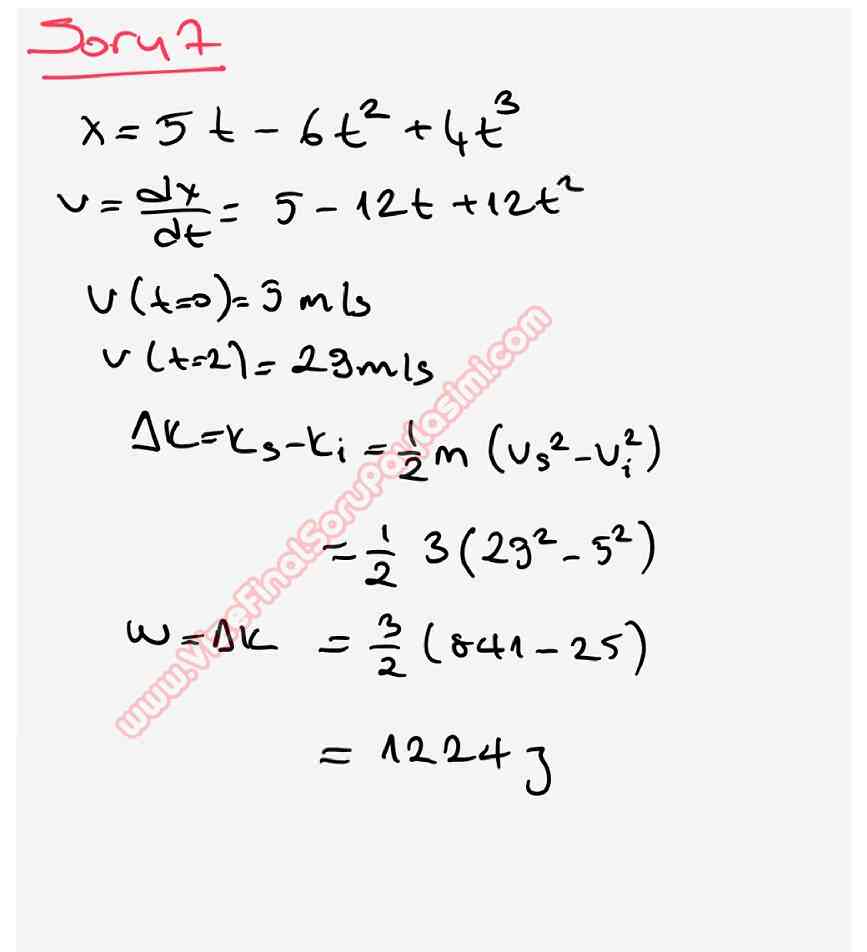 Soru 7
x = 5t - 6t² + 4t³
v = dx/dt = 5 - 12t + 12t²
v(t=0) = 5 m/s
v(t=2) = 29 m/s
ΔK = Ks - Ki = 1/2 m (vs² - vi²)
= 1/2 3(29² - 5²)
W = ΔK = 3/2 (841 - 25)
= 1224 J
www.VizeFinalSoruPaylasimi.com